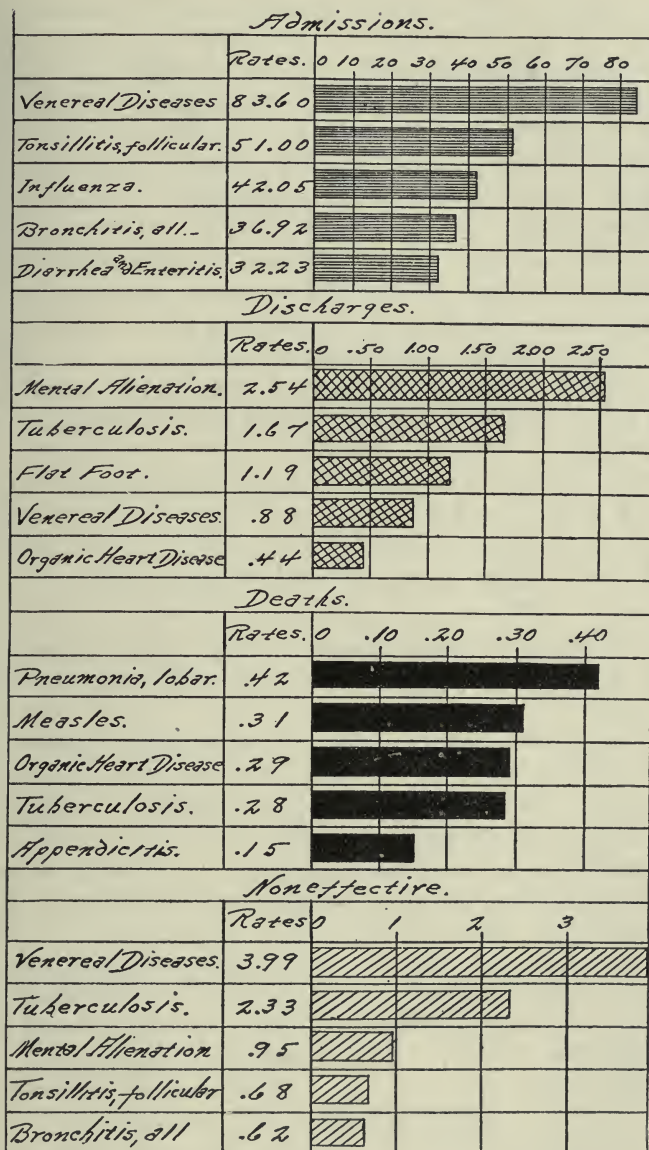 Admissions.
Rates. 0 10 20 30 40 50 60 70 80
Venereal Diseases 83.60
Tonsillitis, follicular. 51.00
Influenza. 42.05
Bronchitis, all.- 36.92
Diarrhea and Enteritis. 32.23
Discharges.
Rates. 0 .50 1.00 1.50 2.00 2.50
Mental Alienation. 2.54
Tuberculosis. 1.67
Flat Foot. 1.19
Venereal Diseases. .88
Organic Heart Disease .44
Deaths.
Rates. 0 .10 .20 .30 .40
Pneumonia, lobar. .42
Measles. .31
Organic Heart Disease .29
Tuberculosis. .28
Appendicitis. .15
Noneffective.
Rates 0 1 2 3
Venereal Diseases. 3.99
Tuberculosis. 2.33
Mental Alienation .95
Tonsillitis, follicular .68
Bronchitis, all .62